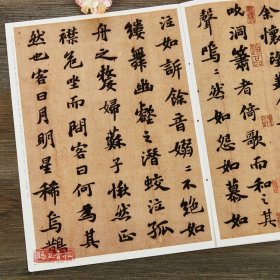 懷
吹洞簫者倚歌而和之其
聲嗚〻然如怨如慕如
泣如訴餘音嫋〻不絕如
縷舞幽壑之潛蛟泣孤
舟之嫠婦蘇子愀然正
襟危坐而問客曰何為其
然也客曰月明星稀烏鵲